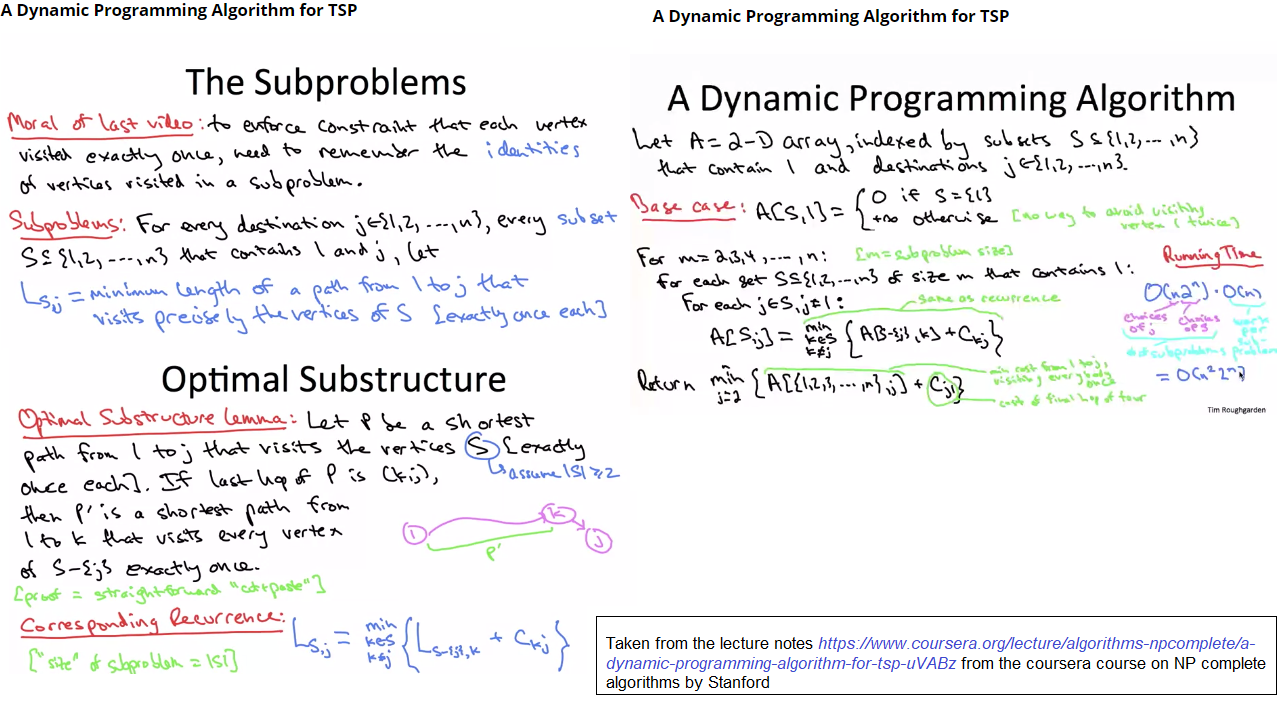 A Dynamic Programming Algorithm for TSP
The Subproblems
Moral of last video: to enforce constraint that each vertex
visited exactly once, need to remember the identities
of vertices visited in a subproblem.
Subproblems: For every destination j∈{1,2,...,n}, every subset
S⊆{1,2,...,n} that contains 1 and j, let
L_{S,j} = minimum length of a path from 1 to j that
visits precisely the vertices of S [exactly once each]
Optimal Substructure
Optimal Substructure Lemma: Let P be a shortest
path from 1 to j that visits the vertices S [exactly
once each]. If last hop of P is (k,j),
↳ assume |S| ≥ 2
then P' is a shortest path from
1 to k that visits every vertex
of S-{j} exactly once.
1 k j
P'
[proof = straightforward "cut+paste"]
Corresponding Recurrence:
L_{S,j} = min_{k∈S, k≠j} { L_{S-{j},k} + C_{kj} }
["size" of subproblem = |S|]
A Dynamic Programming Algorithm for TSP
A Dynamic Programming Algorithm
Let A = 2-D array, indexed by subsets S⊆{1,2,...,n}
that contain 1 and destinations j∈{1,2,...,n}.
Base case: A[S,1] = { 0 if S={1}
+∞ otherwise [no way to avoid visiting
vertex 1 twice]
For m=2,3,4,...,n: [m=subproblem size]
For each set S⊆{1,2,...,n} of size m that contains 1:
For each j∈S, j≠1:
same as recurrence
A[S,j] = min_{k∈S, k≠j} { A[S-{j},k] + C_{kj} }
Return min_{j=2}^{n} { A[{1,2,3,...,n},j] + C_{j1} }
min cost from 1 to j,
visiting everybody
once
cost of final hop of tour
Running Time
O(n2^n) · O(n)
choices of j
choices of S
work per subproblem
# of subproblems
= O(n²2^n)
Tim Roughgarden
Taken from the lecture notes https://www.coursera.org/lecture/algorithms-npcomplete/a-
dynamic-programming-algorithm-for-tsp-uVABz from the coursera course on NP complete
algorithms by Stanford